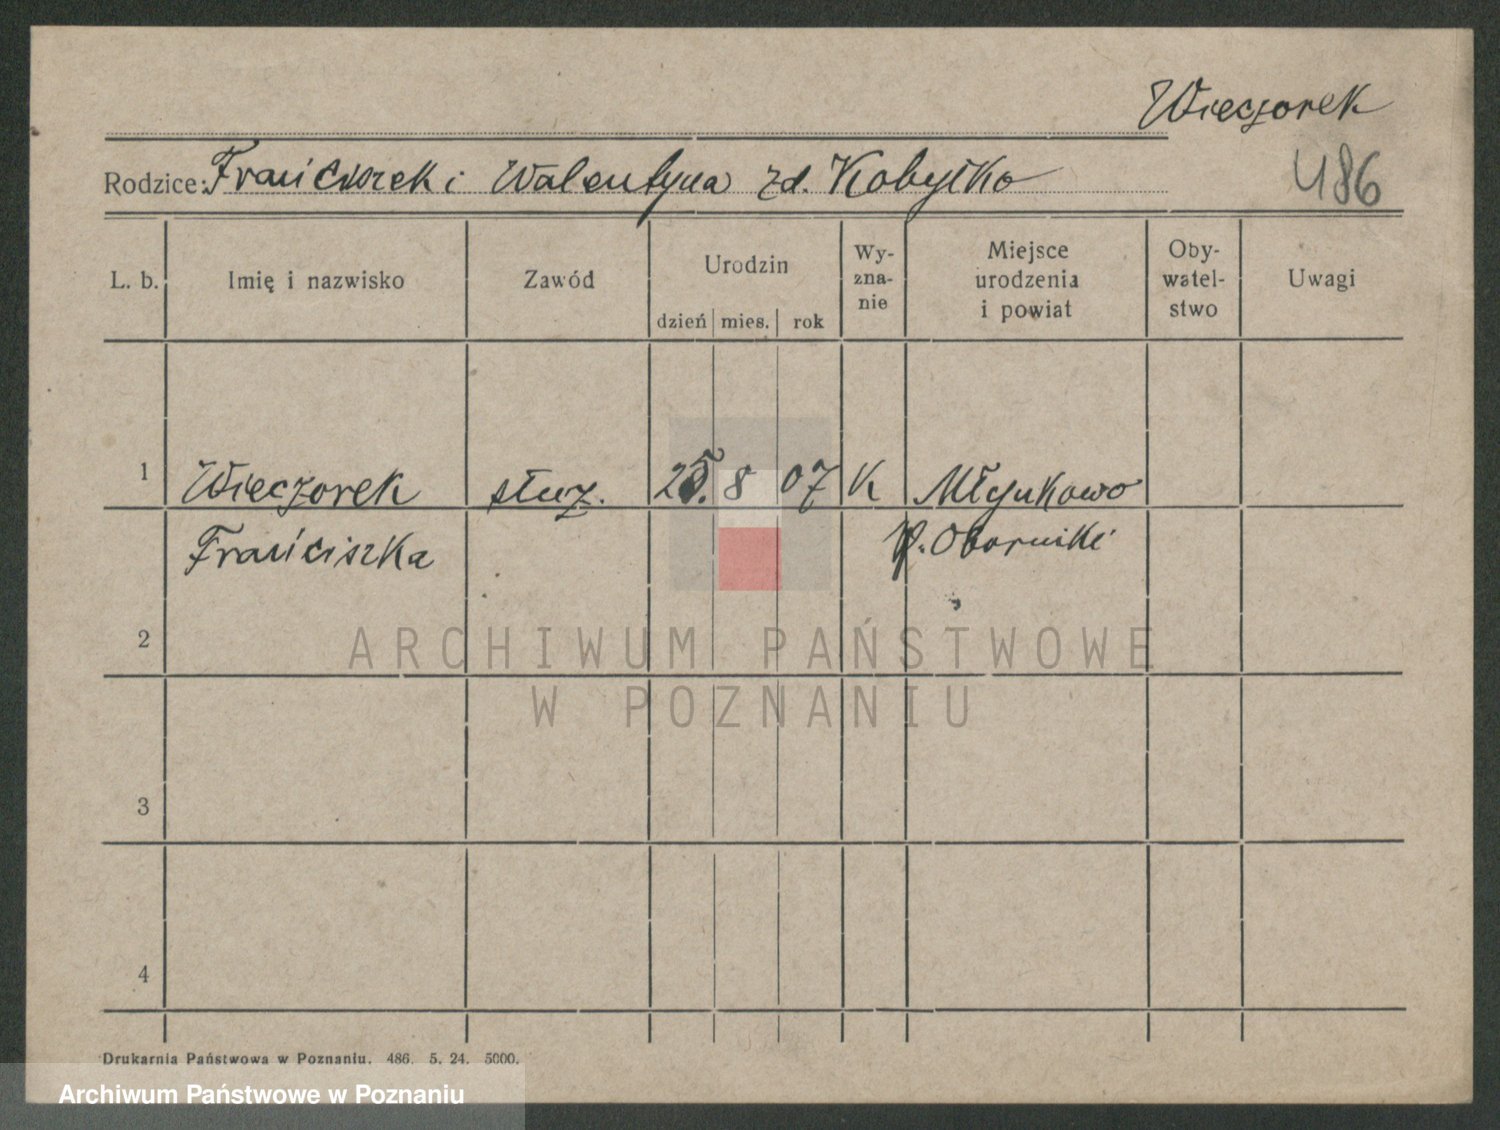 Wieczorek
Rodzice: Franciszek i Walentyna zd. Kobyłko
486
L. b. Imię i nazwisko Zawód Urodzin Wy- Miejsce Oby- Uwagi
zna- urodzenia watel-
nie i powiat stwo
dzień mies. rok
1 Wieczorek służ. 25. 8 07 K Młynkowo
Franciszka p. Oborniki
2
ARCHIWUM PAŃSTWOWE
W POZNANIU
3
4
Drukarnia Państwowa w Poznaniu. 486. 5. 24. 5000.
Archiwum Państwowe w Poznaniu